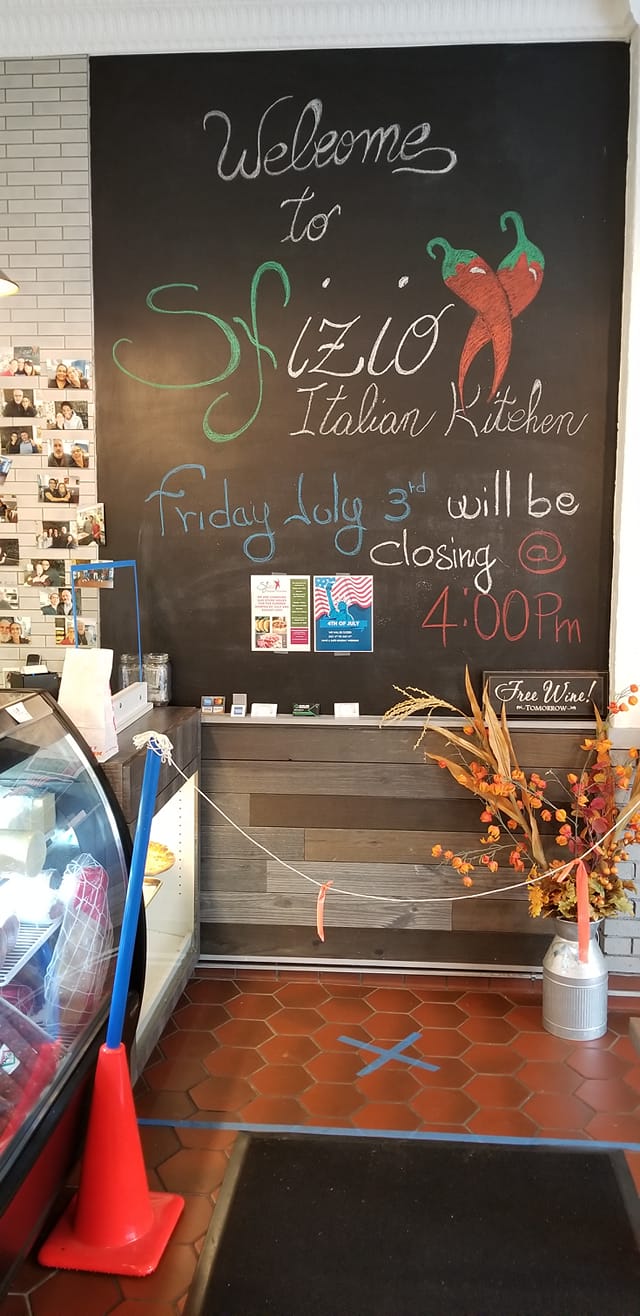 Welcome
to
Sfizio
Italian Kitchen
Friday July 3rd will be
closing @
4:00Pm
4TH OF JULY
Free Wine!
TOMORROW